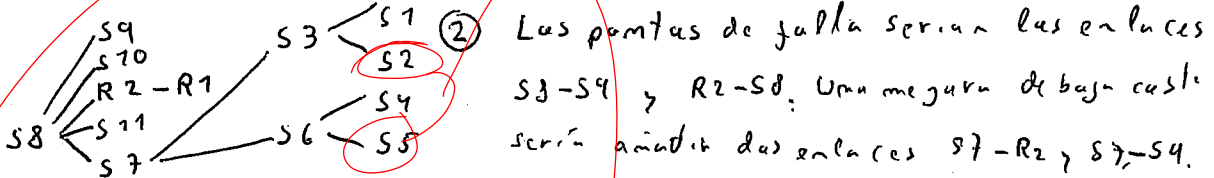 S9
S10
R2-R1
S11
S7
S8
S3
S1
S2
S6
S4
S5
② Los puntos de falla serian los enlaces
S8-S9 y R2-S8. Una mejora de bajo costo
sería añadir dos enlaces S7-R2 y S7-S9.